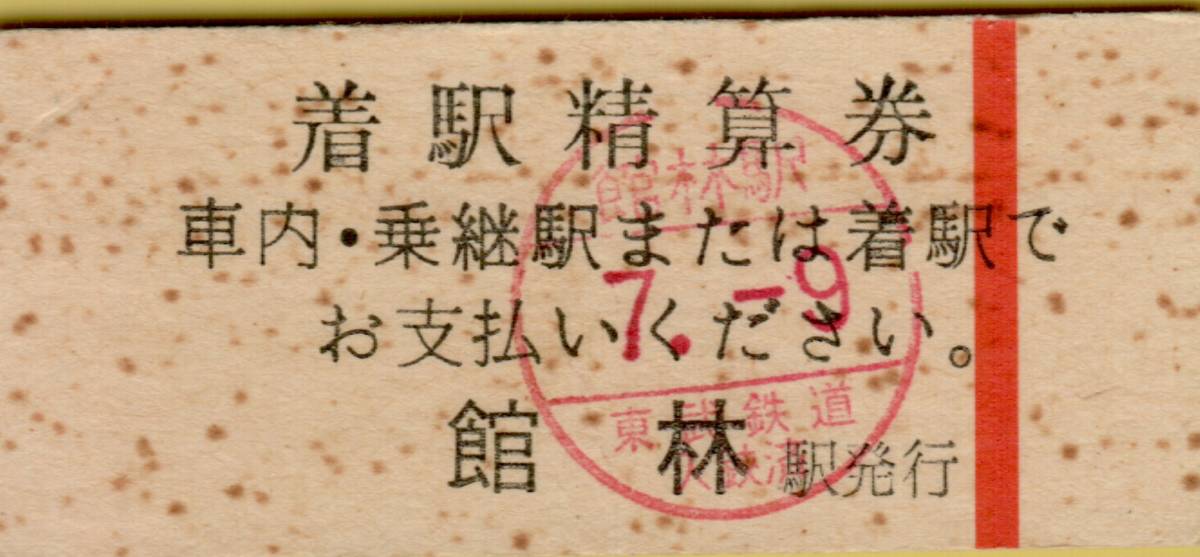 着駅精算券
車内・乗継駅または着駅で
お支払いください。
館林駅発行
館林駅
7.-9
東武鉄道